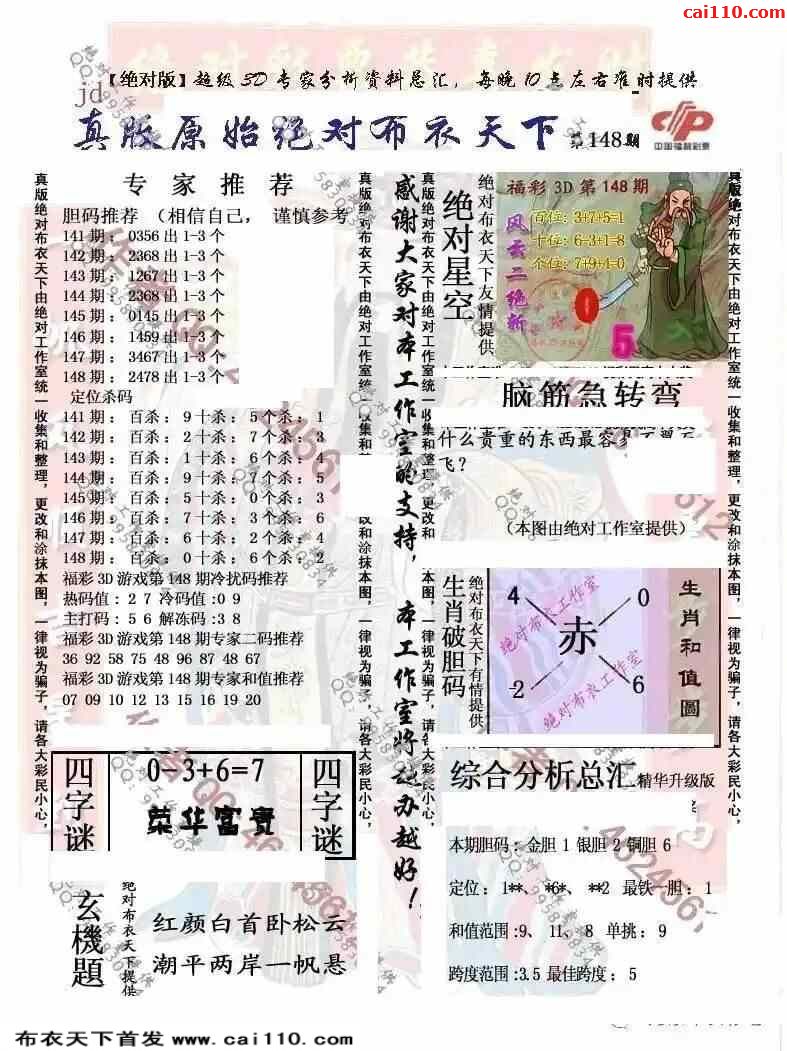 cai110.com
【绝对版】超级3D专家分析资料总汇，每晚10点左右准时提供
jd
真版原始绝对布衣天下
第148期
中国福利彩票
真版绝对布衣天下由绝对工作室统一收集和整理，更改和涂抹本图，一律视为骗子，请各大彩民小心，
专家推荐
胆码推荐 （相信自己， 谨慎参考
141期：0356出1-3个
142期：2368出1-3个
143期：1267出1-3个
144期：2368出1-3个
145期：0145出1-3个
146期：1459出1-3个
147期：3467出1-3个
148期：2478出1-3个
定位杀码
141期：百杀：9十杀：5个杀：1
142期：百杀：2十杀：7个杀：3
143期：百杀：1十杀：6个杀：4
144期：百杀：9十杀：7个杀：5
145期：百杀：5十杀：0个杀：3
146期：百杀：7十杀：3个杀：6
147期：百杀：6十杀：2个杀：4
148期：百杀：0十杀：6个杀：2
福彩3D游戏第148期冷扰码推荐
热码值：27冷码值:09
主打码：56解冻码:38
福彩3D游戏第148期专家二码推荐
36 92 58 75 48 96 87 48 67
福彩3D游戏第148期专家和值推荐
07 09 10 12 13 15 16 19 20
四字谜
0-3+6=7
荣华富贵
四字谜
玄機題
绝对布衣天下提供
红颜白首卧松云
潮平两岸一帆悬
真版绝对布衣天下由绝对工作室统一收集和整
改和涂抹本图，一律视为骗子，请各大彩民小心，
感谢大家对本工作室的支持，本工作室将越办越好！
绝对星空
绝对布衣天下友情提供
福彩3D第148期
风云二绝斩
百位：3+7+5=1
十位：6-3+1=8
个位：7+9+4=0
0
5
脑筋急转弯
什么贵重的东西最容易不翼而
飞？
（本图由绝对工作室提供）
生肖破胆码
绝对布衣天下有情提供
4
0
赤
2
6
绝对布衣工作室
绝对布衣工作室
生肖和值圖
综合分析总汇 精华升级版
本期胆码：金胆 1 银胆 2 铜胆 6
定位：1**、*6*、**2 最铁一胆：1
和值范围:9、11、8 单挑：9
跨度范围:3.5 最佳跨度：5
真版绝对布衣天下由绝对工作室统一收集和整理，更改和涂抹本图，一律视为骗子，请各大彩民小心，
布衣天下首发 www.cai110.com